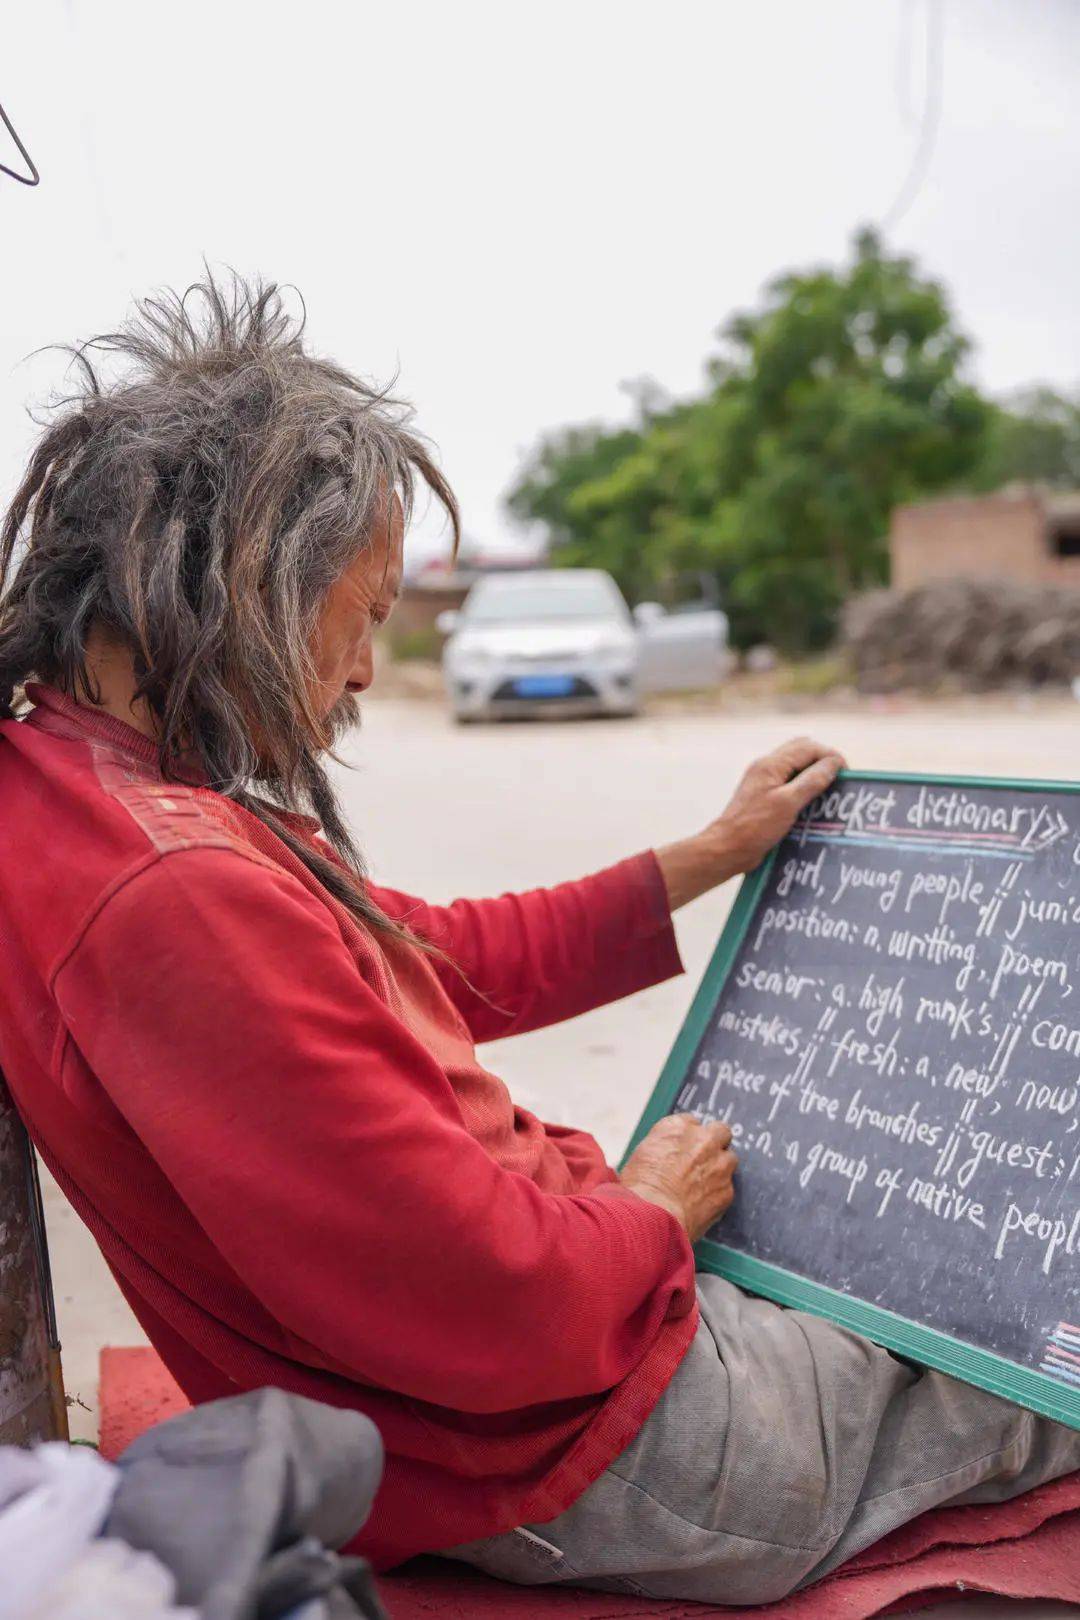 pocket dictionary》
girl, young people,∥ junio
position: n. writting, poem,
senior: a. high rank's,∥ con
mistakes,∥ fresh: a. new, now,
a piece of tree branches,∥ guest:
∥ n. a group of native people